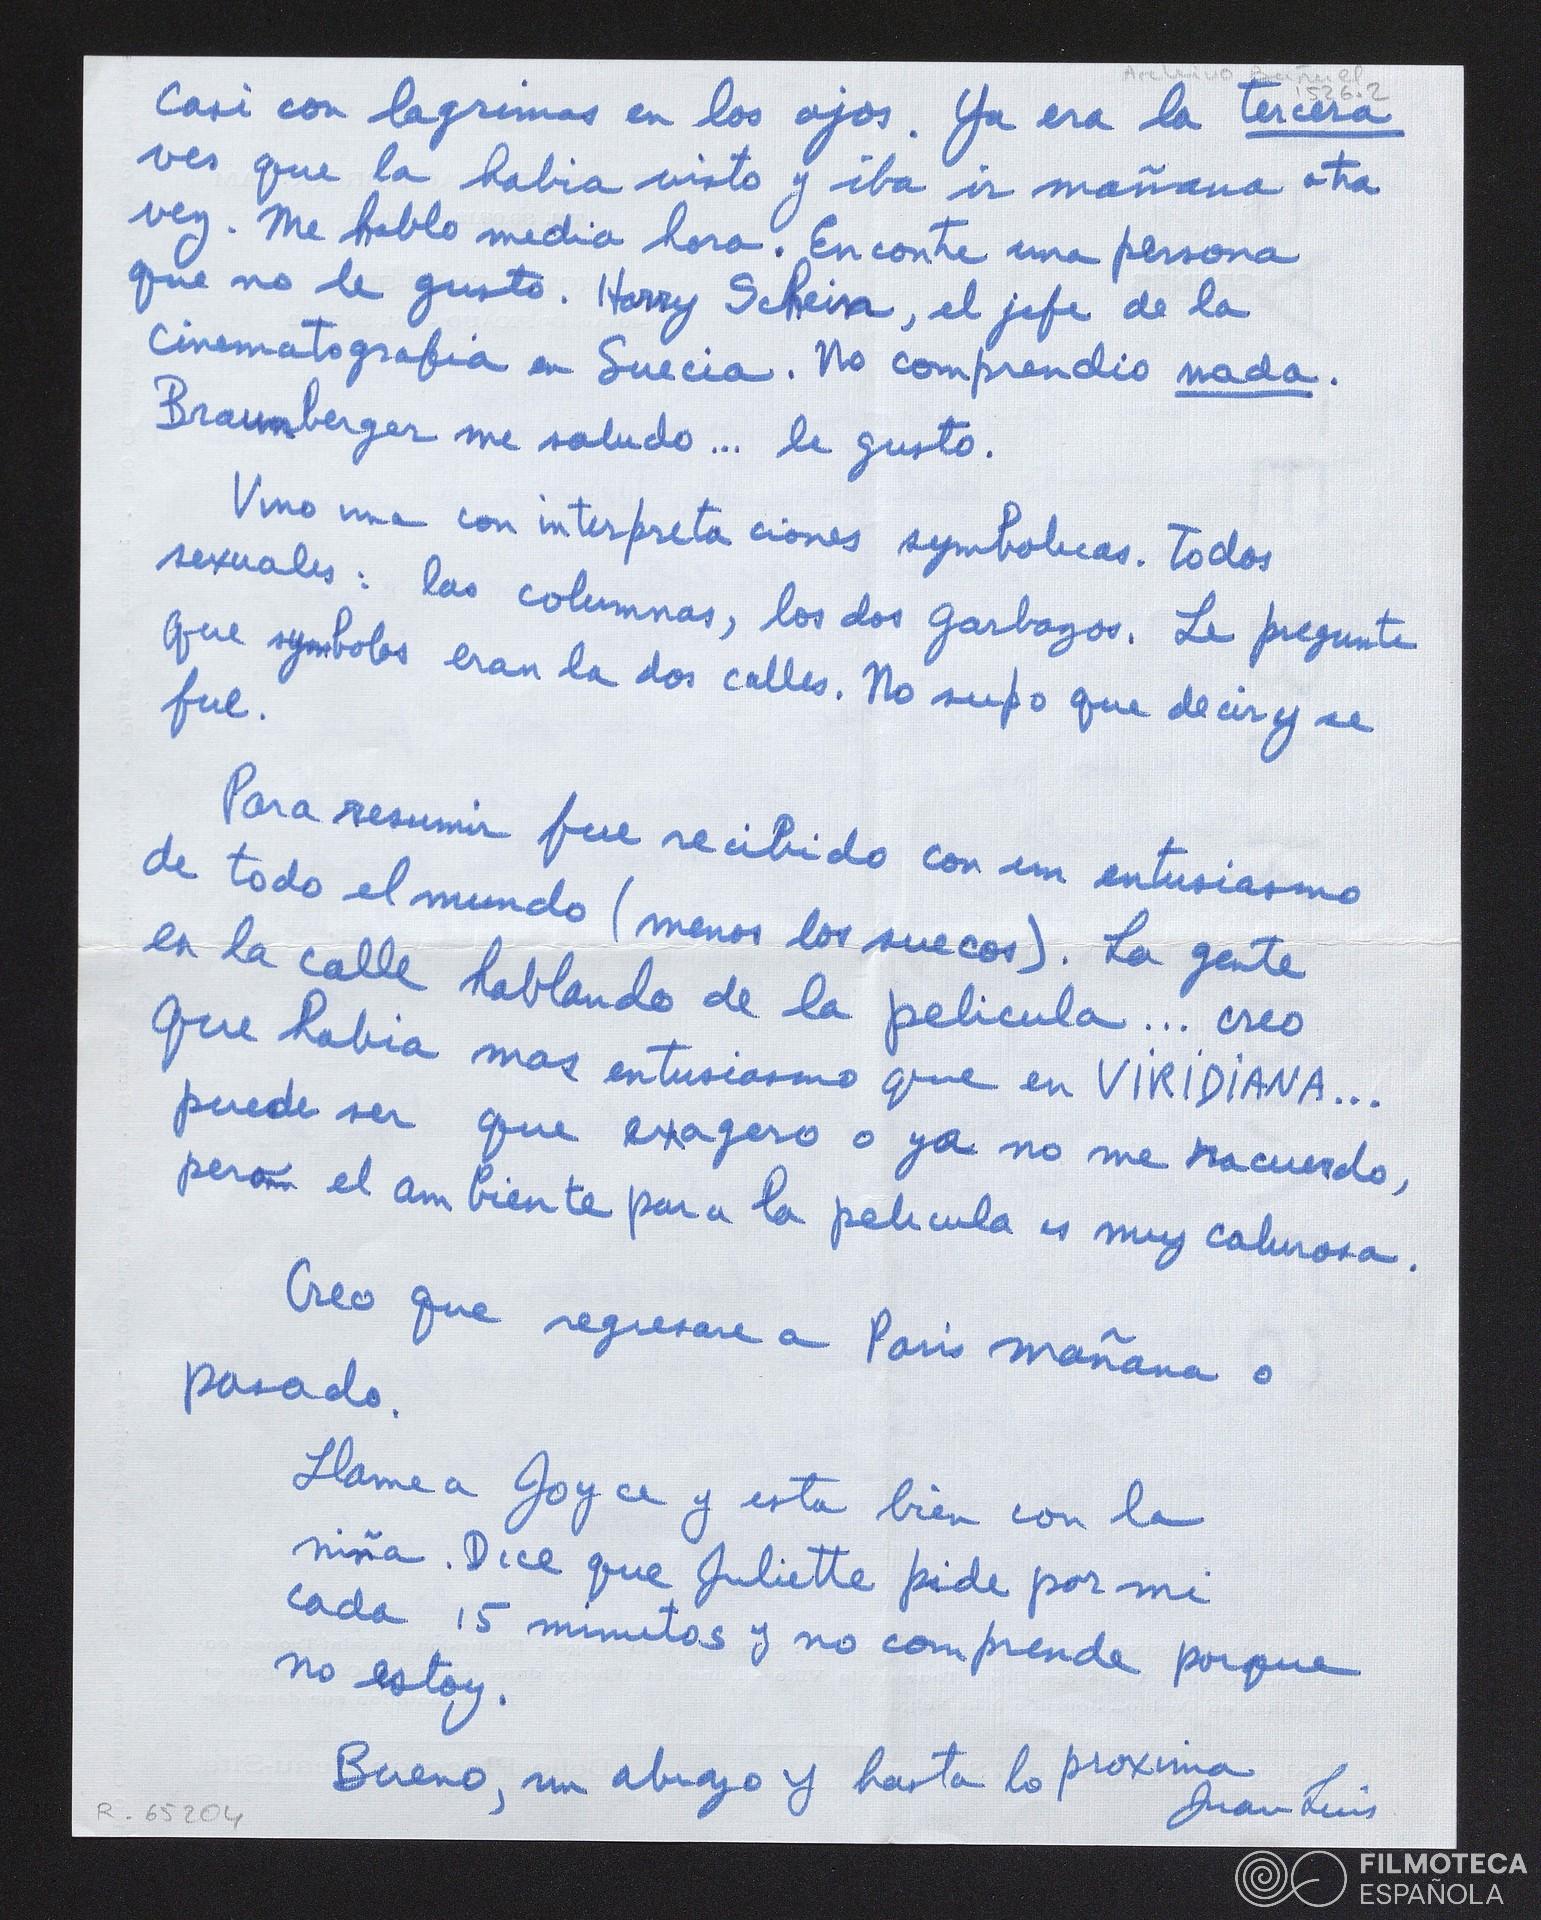 Archivo Buñuel
1526.2
Casi con lagrimas en los ojos. Ya era la tercera
ves que la habia visto y iba ir mañana otra
vez. Me hablo media hora. Enconte una persona
que no le gusto. Harry Schein, el jefe de la
cinematografia en Suecia. No comprendio nada.
Braunberger me saludo... le gusto.
Vino una con interpretaciones symbolicas. Todos
sexuales: las columnas, los dos garbazos. Le pregunte
que symbolos eran la dos calles. No supo que decir y se
fue.
Para resumir fue recibido con un entusiasmo
de todo el mundo (menos los suecos). La gente
en la calle hablando de la pelicula... creo
que habia mas entusiasmo que en VIRIDIANA...
puede ser que exagero o ya no me racuerdo,
pero el ambiente para la pelicula es muy calurosa.
Creo que regresare a Paris mañana o
pasado.
Llame a Joyce y esta bien con la
niña. Dice que Juliette pide por mi
cada 15 minutos y no comprende porque
no estoy.
Bueno, un abrazo y hasta lo proxima
Juan Luis
R. 65204
FILMOTECA
ESPAÑOLA